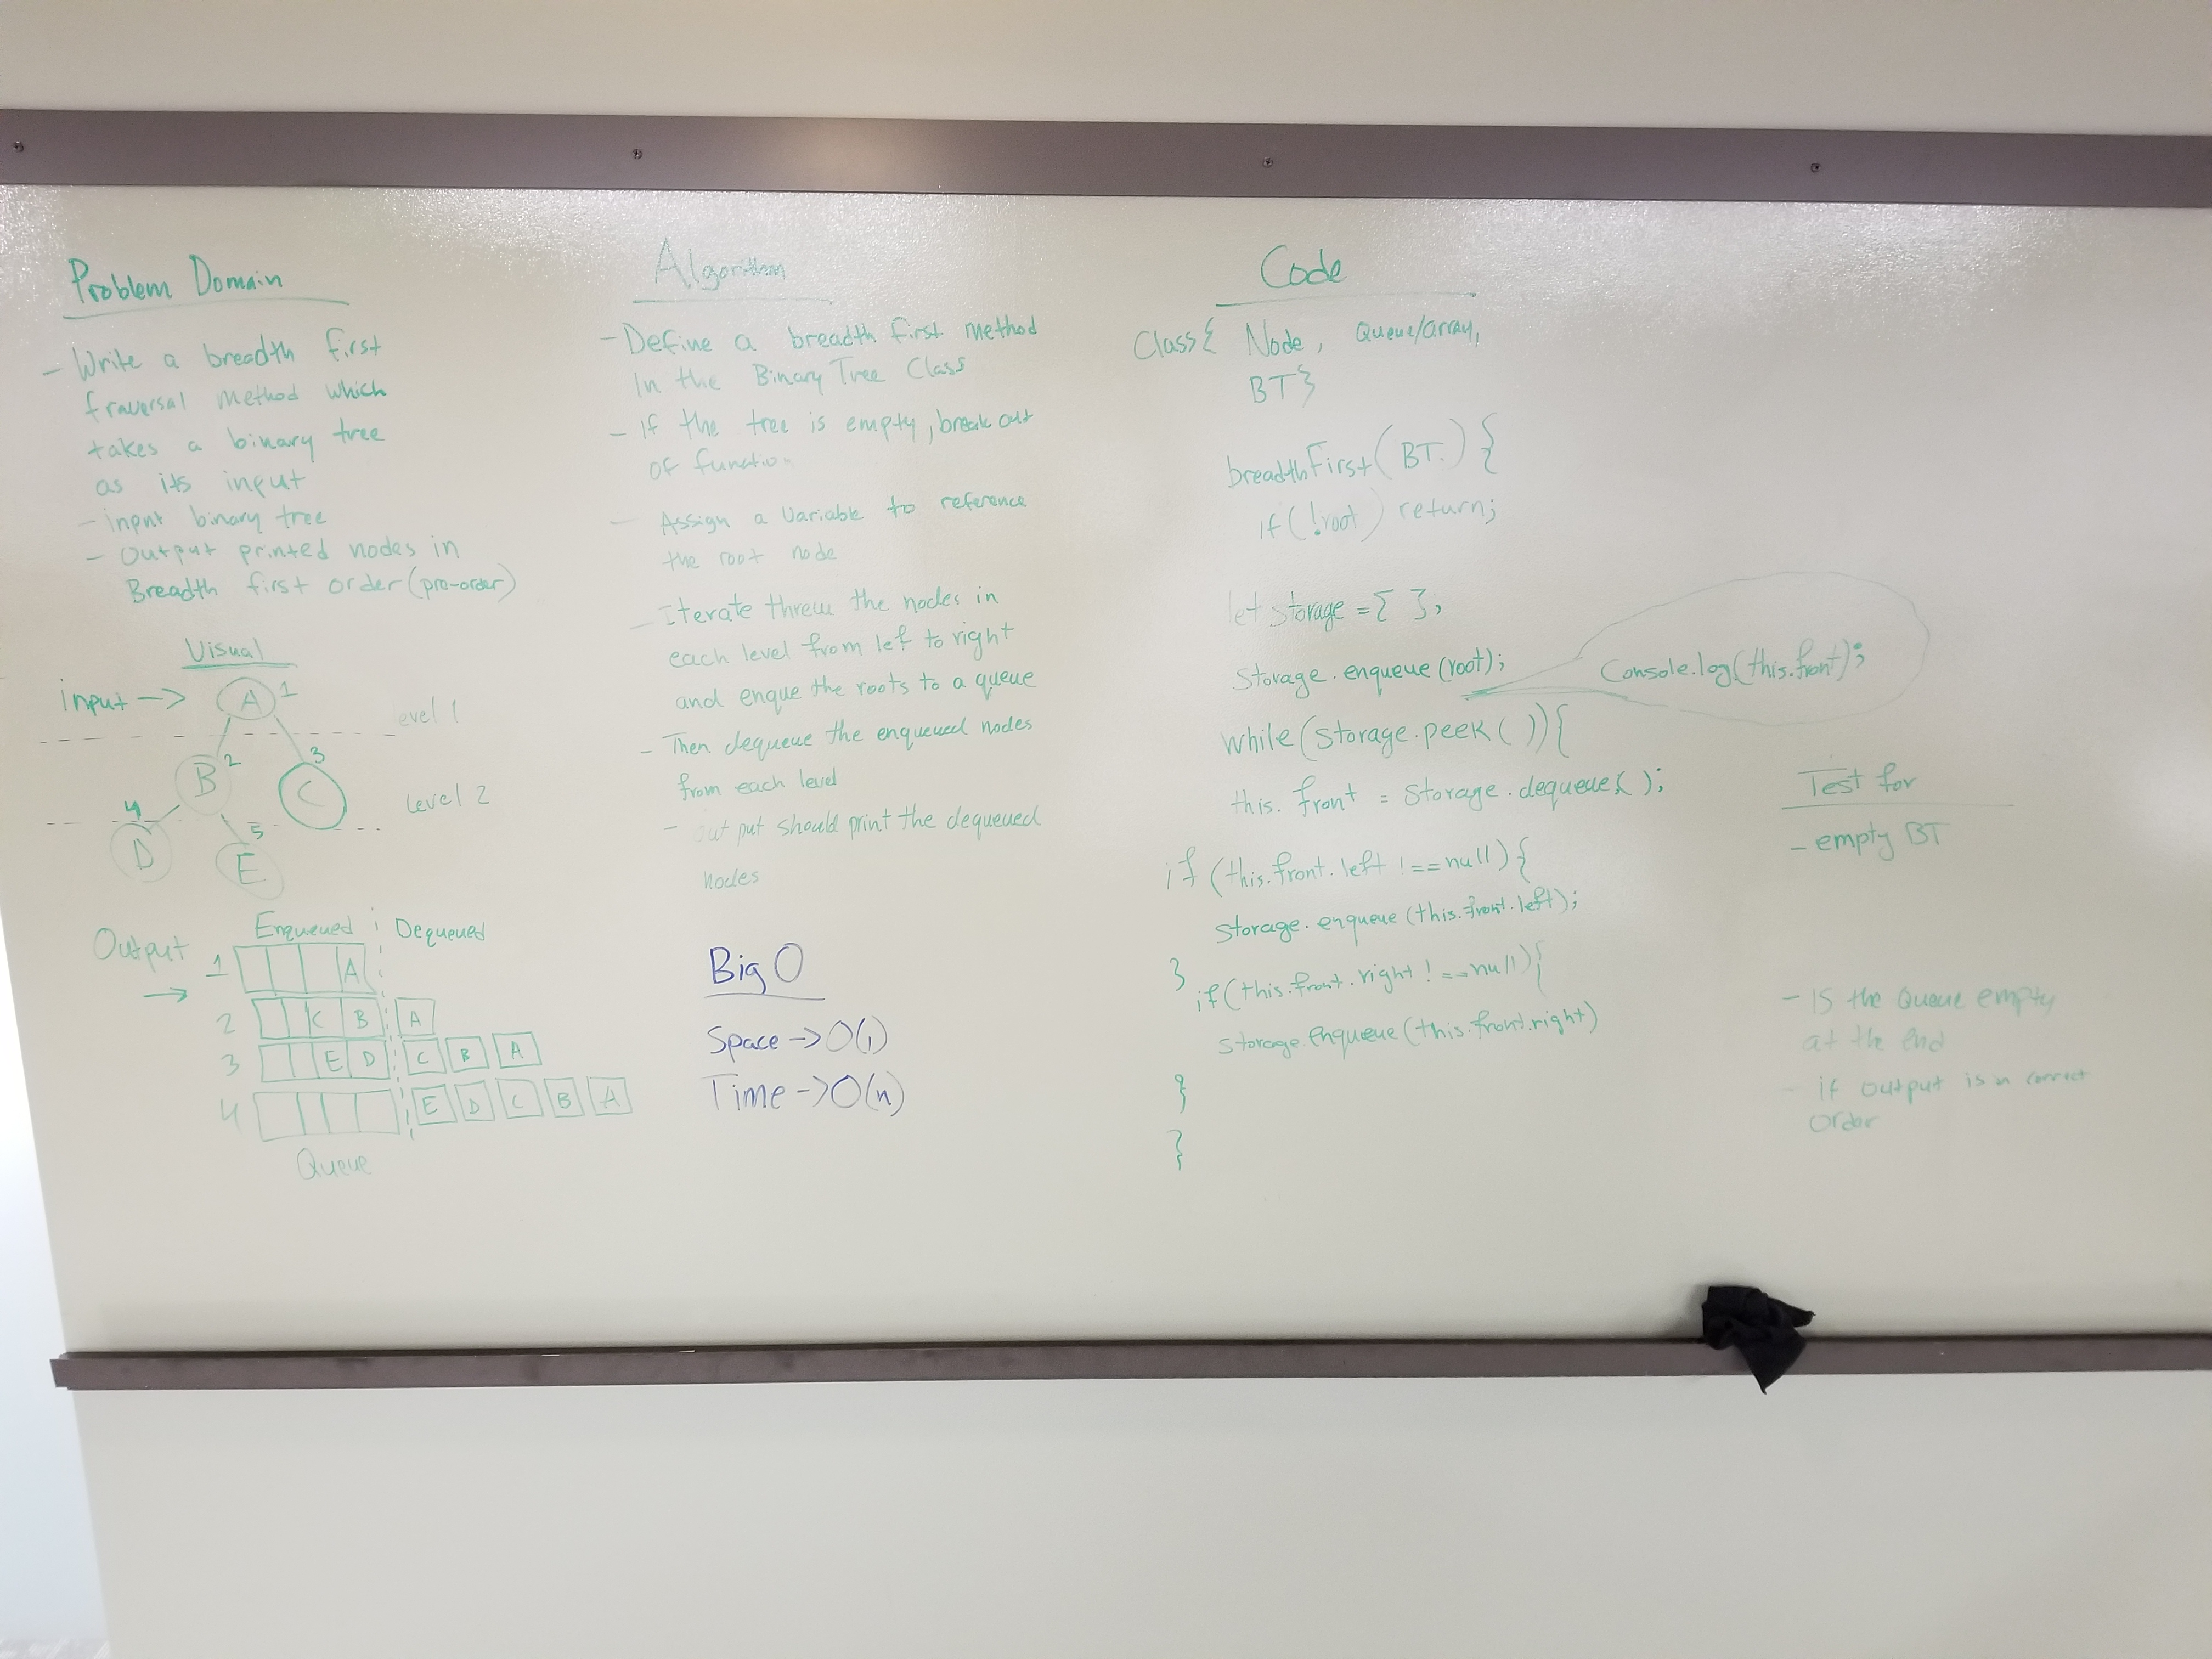 Problem Domain
- Write a breadth first
traversal method which
takes a binary tree
as its input
- input binary tree
- Output printed nodes in
Breadth first order (pre-order)
Visual
input ->
A 1
level 1
B 2
C 3
level 2
4 D
5 E
Output ->
Enqueued Dequeued
1 A
2 C B A
3 E D C B A
4 E D C B A
Queue
Algorithm
- Define a breadth first method
In the Binary Tree Class
- if the tree is empty, break out
of function
- Assign a variable to reference
the root node
- Iterate threw the nodes in
each level from lef to right
and enque the roots to a queue
- Then dequeue the enqueued nodes
from each level
- out put should print the dequeued
nodes
Big O
Space -> O(1)
Time -> O(n)
Code
Class{ Node, Queue/array,
BT}
breadthFirst(BT.) {
if(!root) return;
let storage = { };
Storage.enqueue(root);
Console.log(this.front);
while(storage.peek()){
this.front = Storage.dequeue();
if (this.front.left !== null){
storage.enqueue(this.front.left);
}
if(this.front.right !== null){
storage.enqueue(this.front.right)
}
}
Test for
- empty BT
- is the Queue empty
at the end
- if output is in correct
order